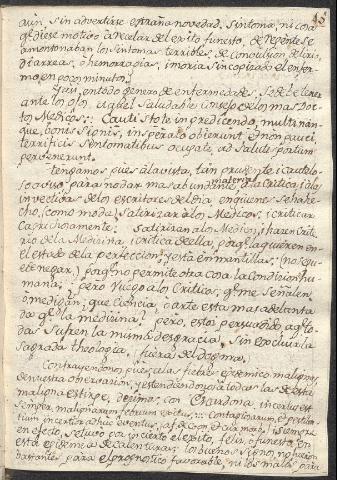 15
aun, sin advertirse extraña novedad, Sintoma, ni cosa
qe. diese motivo a recelar del exito funesto, de repente se
amontonaban los Sintomas terribles de convulsion, delirio,
diarreas, o hemorragias, i moria sincopizado el enfer-
mo, en pocos minutos.
Y asi, en todo genero de enfermedades, se debe tener
ante los ojos, aquel Saludable consejo de los mas Doc-
tos Medicos: Cauti Stote in predicendo, multi nan-
que, bonis Signis, insperato obierunt, et non pauci
terrificis Sentomatibus ocupati, ad Salutis portum
pervenerunt.
tengamos pues a la vista, tan prudente, i cautelo-
so aviso, para no dar mas abundante materia a la Critica, i a las
invectivas de los escritores del dia, en quienes se ha he-
cho, (como moda) Satirizar a los Medicos, i criticar
Caprichosamente: Satirizan al os Medicos, i hacen Crite-
rio de la Medicina, i critica de ella, porqe. la quieren en
el estado de la perfeccion, y está en mantillas: (no se que-
de negar,) porqe. no permite otra cosa la condicion hu-
mana; pero ruego a los Criticos, qe. me Señalen,
o me digan, que Ciencia, o arte esta mas adelanta
da qe. la medicina? pero, estoi persuadido, aqe. to-
das Sufren la misma desgracia, Sin excluir la
Sagrada theologia, fuera del dogma.
Contrayendonos, pues, a las fiebres epidemico malignas,
de nuestra observacion, y estendiendonos a todas las de esta
maligna estirpe, decimos, con Chardona, incertus est
Semper, malignarum febrium exitus, ... Contagionarum, et pestilen-
tium incertior adhuc eventus, i
en efecto, se tuvo por incierto el exito, feliz, o funesto, en
esta epidemia de calenturas; los buenos Signos, no fueron
bastantes para el prognostico favorable, ni los malos para